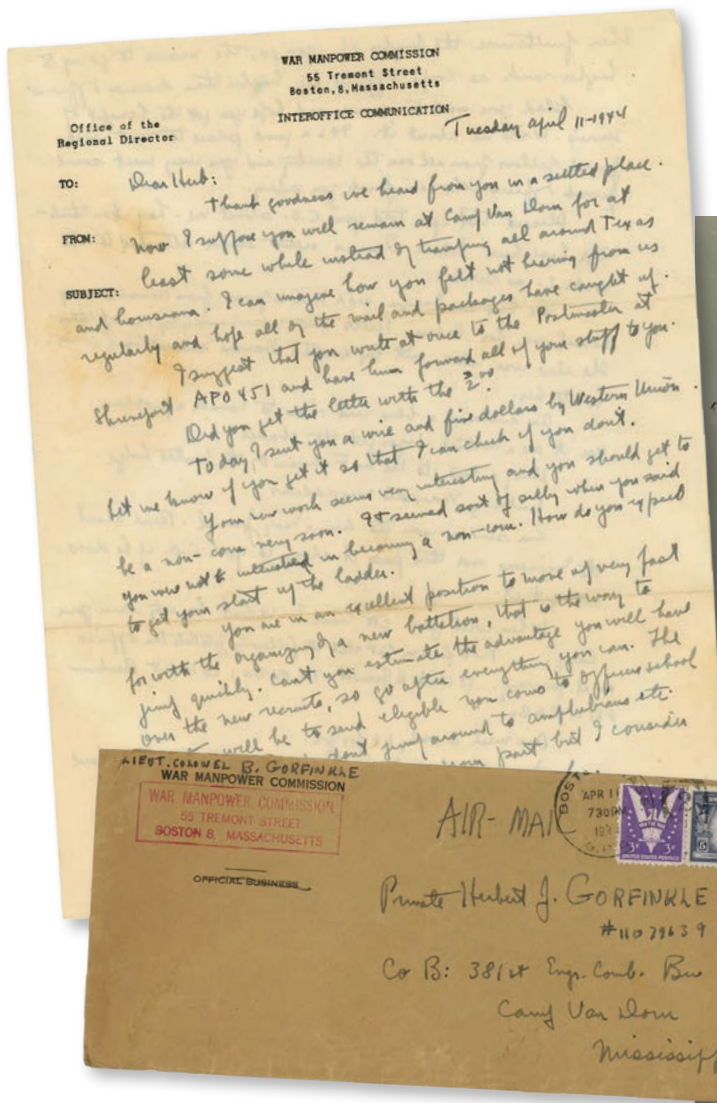 WAR MANPOWER COMMISSION
55 Tremont Street
Boston, 8, Massachusetts
INTEROFFICE COMMUNICATION
Office of the
Regional Director
Tuesday April 11-1944
TO:
Dear Herb:
Thank goodness we heard from you in a settled place.
FROM:
Now I suppose you will remain at Camp Van Dorn for at
least some while instead of tramping all around Texas
SUBJECT:
and Louisiana. I can imagine how you felt not hearing from us
regularly and hope all of the mail and packages have caught up.
I suggest that you write at once to the Postmaster at
Shreveport APO 451 and have him forward all of your stuff to you.
Did you get the letter with the 2.00
Today I sent you a wire and five dollars by Western Union.
Let me know if you get it so that I can check if you don't.
Your new work seems very interesting and you should get to
be a non-com very soon. It seemed sort of silly when you said
you were not interested in becoming a non-com. How do you expect
to get your start up the ladder.
You are in an excellent position to move up very fast
for with the organizing of a new battalion, that is the way to
jump quickly. Can't you estimate the advantage you will have
over the new recruits, so go after everything you can. The
will be to send eligible non coms to officers school
don't jump around to amphibians etc.
part but I consider
LIEUT. COLONEL B. GORFINKLE
WAR MANPOWER COMMISSION
WAR MANPOWER COMMISSION
55 TREMONT STREET
BOSTON 8, MASSACHUSETTS
OFFICIAL BUSINESS
AIR-MAIL
BOST
APR 11
730PM
3¢ 3¢
UNITED STATES POSTAGE
5
Private Herbert J. GORFINKLE
#11039639
Co B: 381st Engr. Comb. Bn
Camp Van Dorn
Mississipp